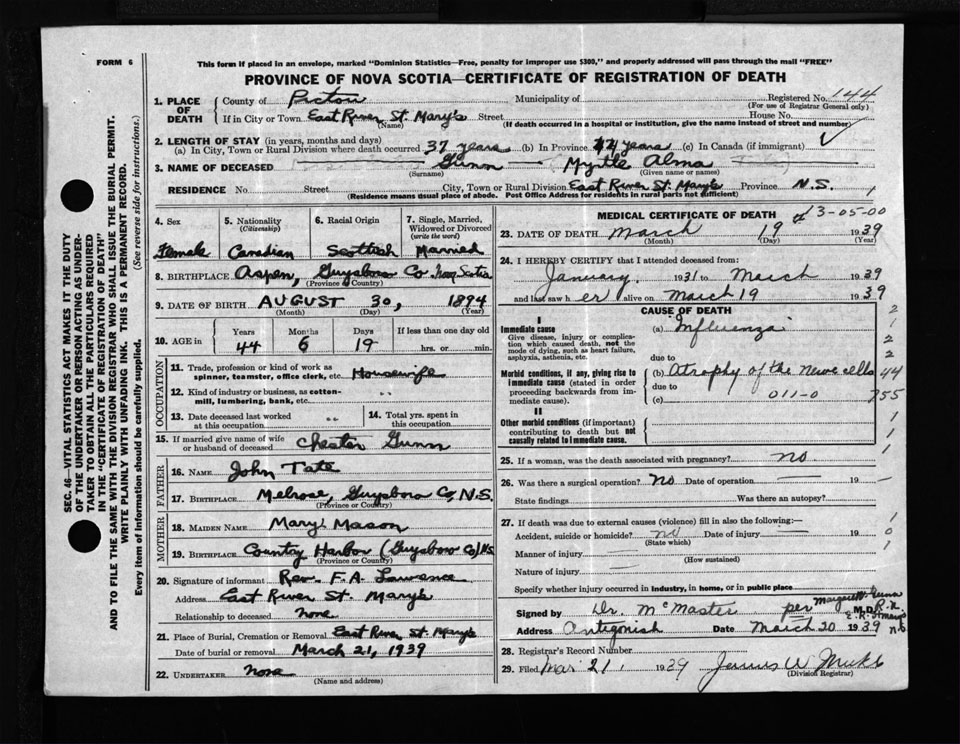 FORM 6
This form if placed in an envelope, marked "Dominion Statistics—Free, penalty for improper use $300," and properly addressed will pass through the mail "FREE"
PROVINCE OF NOVA SCOTIA—CERTIFICATE OF REGISTRATION OF DEATH
SEC. 46—VITAL STATISTICS ACT MAKES IT THE DUTY
OF THE UNDERTAKER OR PERSON ACTING AS UNDER-
TAKER TO OBTAIN ALL THE PARTICULARS REQUIRED
IN THE "CERTIFICATE OF REGISTRATION OF DEATH"
AND TO FILE THE SAME WITH THE DIVISION REGISTRAR WHO SHALL ISSUE THE BURIAL PERMIT.
WRITE PLAINLY WITH UNFADING INK. THIS IS A PERMANENT RECORD.
Every item of information should be carefully supplied. (See reverse side for instructions.)
1. PLACE OF DEATH County of Pictou Municipality of Registered No. 144
(For use of Registrar General only)
If in City or Town East River St. Mary's Street House No.
(Name) (If death occurred in a hospital or institution, give the name instead of street and number)
2. LENGTH OF STAY (in years, months and days)
(a) In City, Town or Rural Division where death occurred 37 years (b) In Province 44 years (c) In Canada (if immigrant)
3. NAME OF DECEASED Gunn Myrtle Alma
(Surname) (Given name or names)
RESIDENCE No Street City, Town or Rural Division East River St. Mary's Province N.S.
(Residence means usual place of abode. Post Office Address for residents in rural parts not sufficient)
4. Sex 5. Nationality (Citizenship) 6. Racial Origin 7. Single, Married, Widowed or Divorced (write the word)
Female Canadian Scottish Married
8. BIRTHPLACE Aspen, Guysboro Co Nova Scotia
(Province or Country)
9. DATE OF BIRTH AUGUST 30, 1894
(Month) (Day) (Year)
10. AGE IN Years Months Days If less than one day old
44 6 19 hrs. or min.
OCCUPATION
11. Trade, profession or kind of work as
spinner, teamster, office clerk, etc. Housewife
12. Kind of industry or business, as cotton-
mill, lumbering, bank, etc. " "
13. Date deceased last worked
at this occupation " "
14. Total yrs. spent in
this occupation
15. If married give name of wife
or husband of deceased Chester Gunn
FATHER
16. NAME John Tate
17. BIRTHPLACE Melrose, Guysboro Co, N.S.
(Province or Country)
MOTHER
18. MAIDEN NAME Mary Mason
19. BIRTHPLACE Country Harbor (Guysboro Co) N.S.
(Province or Country)
20. Signature of informant Rev. F. A. Lawrence
Address East River St. Mary's
Relationship to deceased none
21. Place of Burial, Cremation or Removal East River St. Mary's
Date of burial or removal March 21, 1939
22. UNDERTAKER none
(Name and address)
MEDICAL CERTIFICATE OF DEATH 13-05-00
23. DATE OF DEATH March 19 1939
(Month) (Day) (Year)
24. I HEREBY CERTIFY that I attended deceased from:
January 1931 to March 1939
and last saw her alive on March 19 1939
CAUSE OF DEATH
I
Immediate cause (a) Influenza
Give disease, injury or complica-
tion which caused death, not the
mode of dying, such as heart failure,
asphyxia, asthenia, etc.
due to
Morbid conditions, if any, giving rise to
immediate cause (stated in order
proceeding backwards from im-
mediate cause).
(b) Atrophy of the nerve cells
due to
(c) 011-0
II
Other morbid conditions (if important)
contributing to death but not
causally related to immediate cause.
25. If a woman, was the death associated with pregnancy? no
26. Was there a surgical operation? No Date of operation — 19 —
State findings Was there an autopsy?
27. If death was due to external causes (violence) fill in also the following:—
Accident, suicide or homicide? no Date of injury — 19
(State which)
Manner of injury
(How sustained)
Nature of injury
Specify whether injury occurred in industry, in home, or in public place
Signed by Dr. McMaster per M.D. R.N.
Address Antigonish Date March 20 1939
28. Registrar's Record Number
29. Filed Mar 21 1939
(Division Registrar)